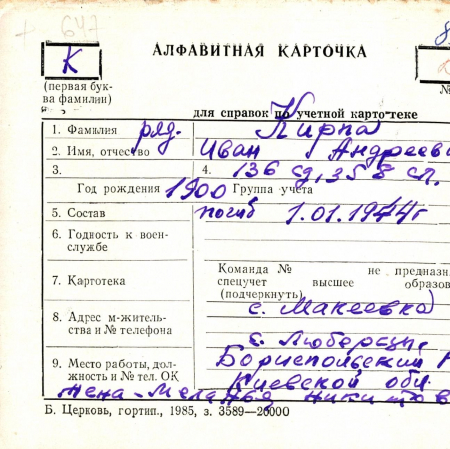 647
К
АЛФАВИТНАЯ КАРТОЧКА
(первая бук-
ва фамилии)
№
для справок по учетной карто-теке
1. Фамилия ряд. Кирпа
2. Имя, отчество Иван Андрееви
3. 4. 136 сд, 358 сп.
Год рождения 1900 Группа учета
5. Состав погиб 1.01.1944г
6. Годность к воен-
службе
Команда № не предназн
7. Картотека спецучет высшее образов
(подчеркнуть)
8. Адрес м-житель-
ства и № телефона
с. Макеевка
с. Люберцы,
9. Место работы, дол-
жность и № тел. ОК
Бориспольский
Киевской обл.
жена - Меланья Никитов
Б. Церковь, гортип., 1985, з. 3589—20000